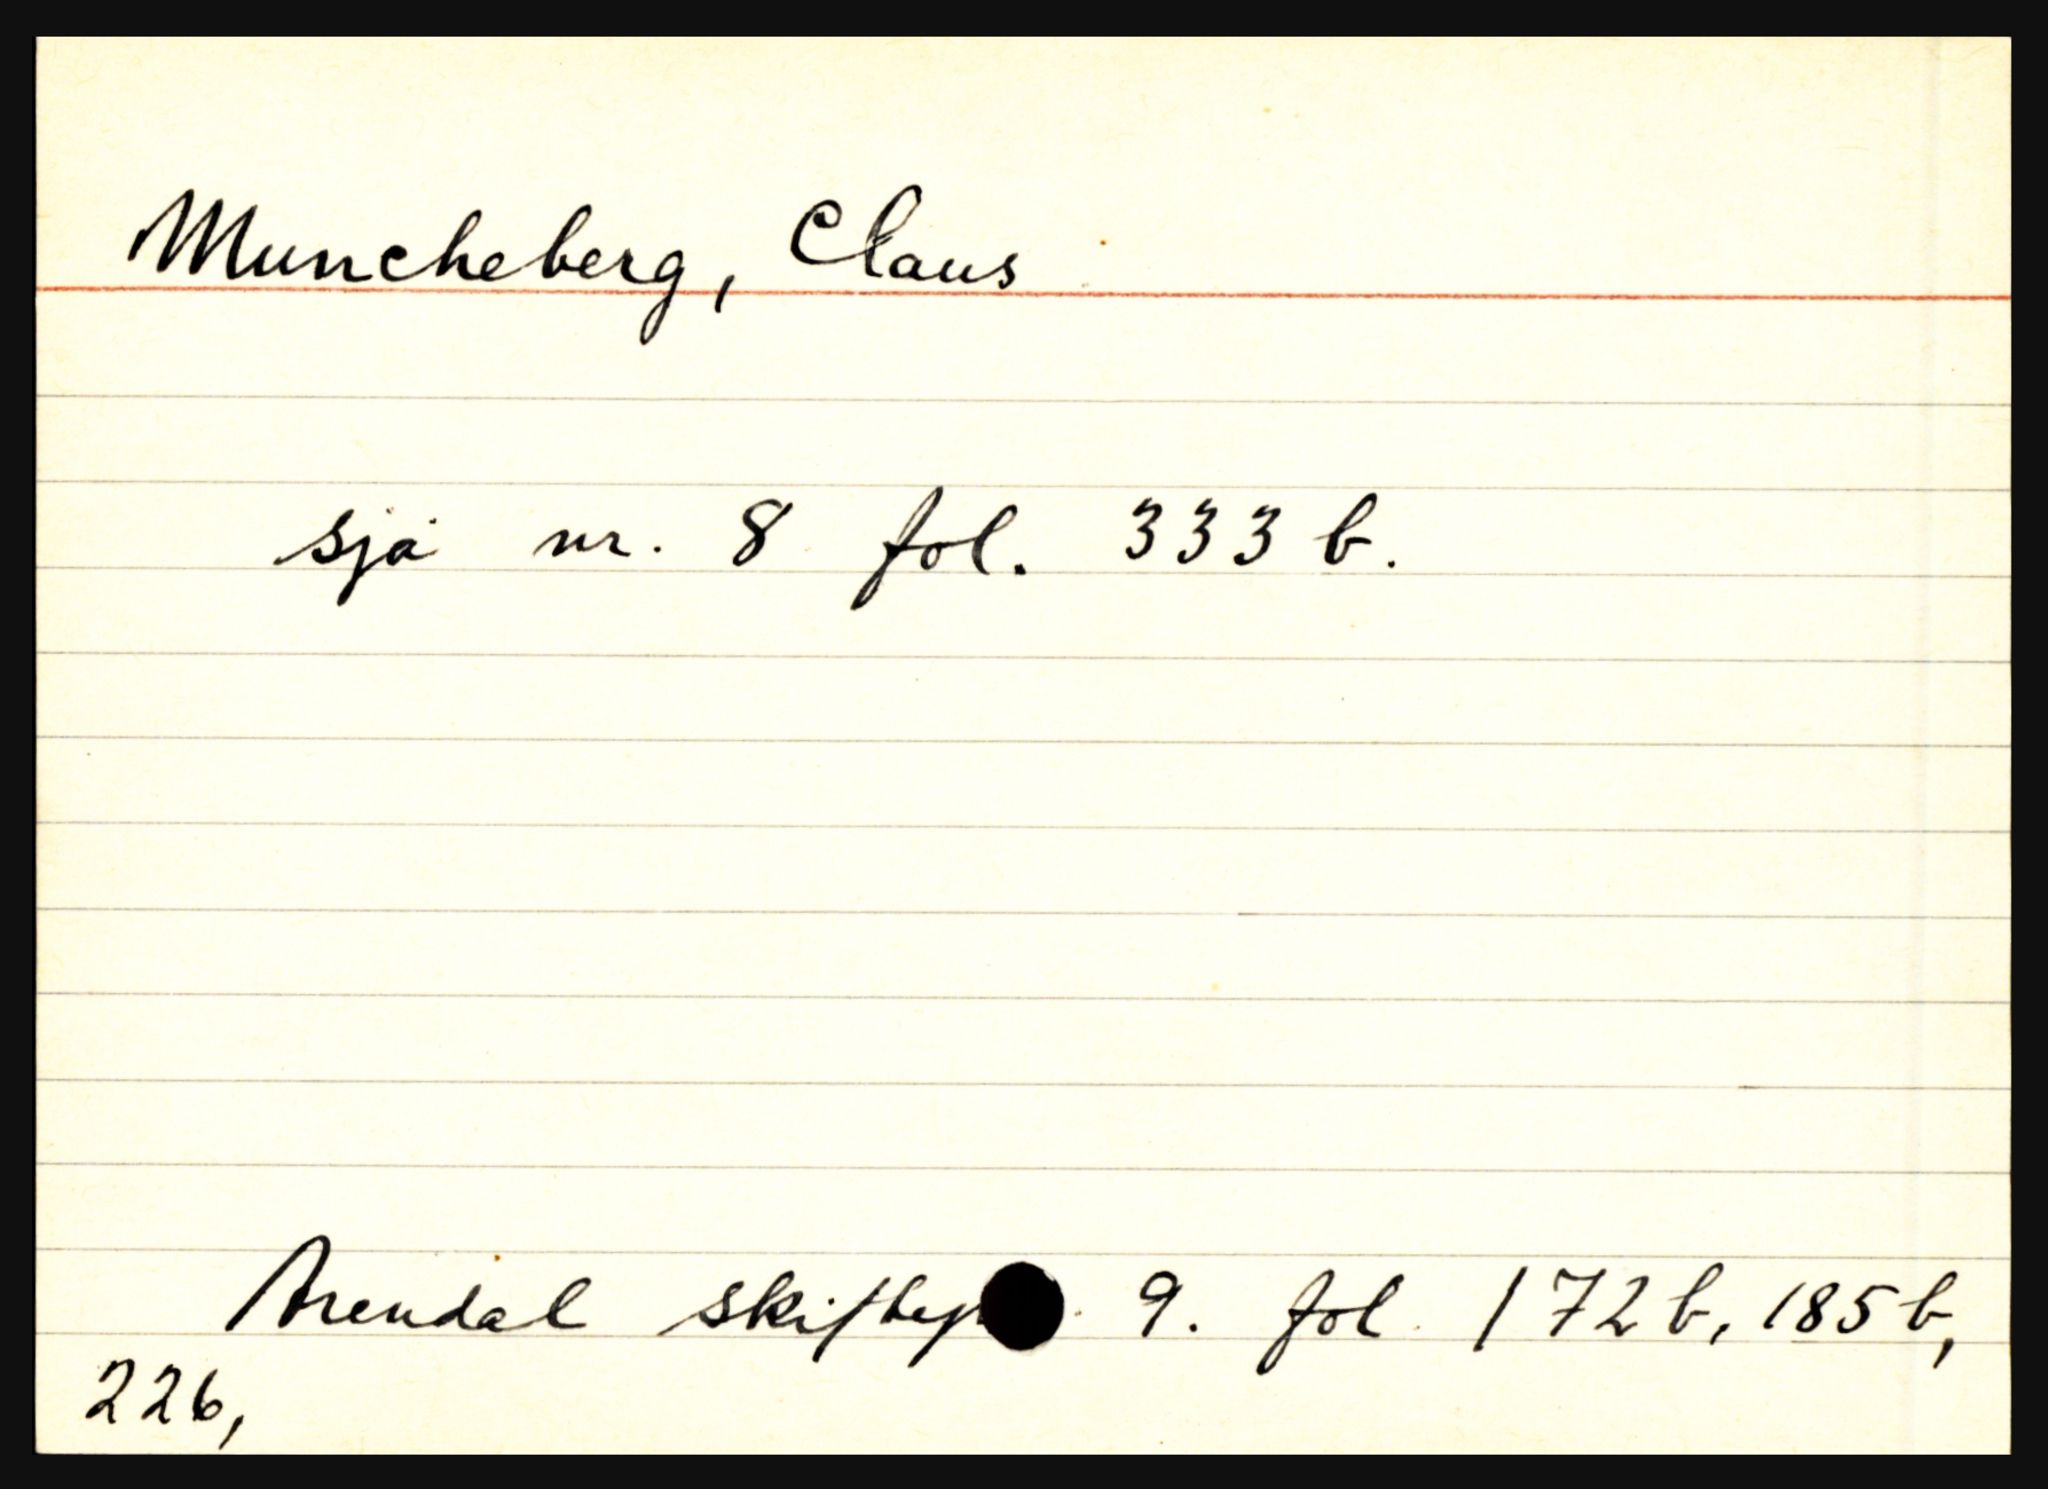 Muncheberg, Claus
sjå nr. 8 fol. 333 b.
Arendal 9. fol. 172 b, 185 b,
226,